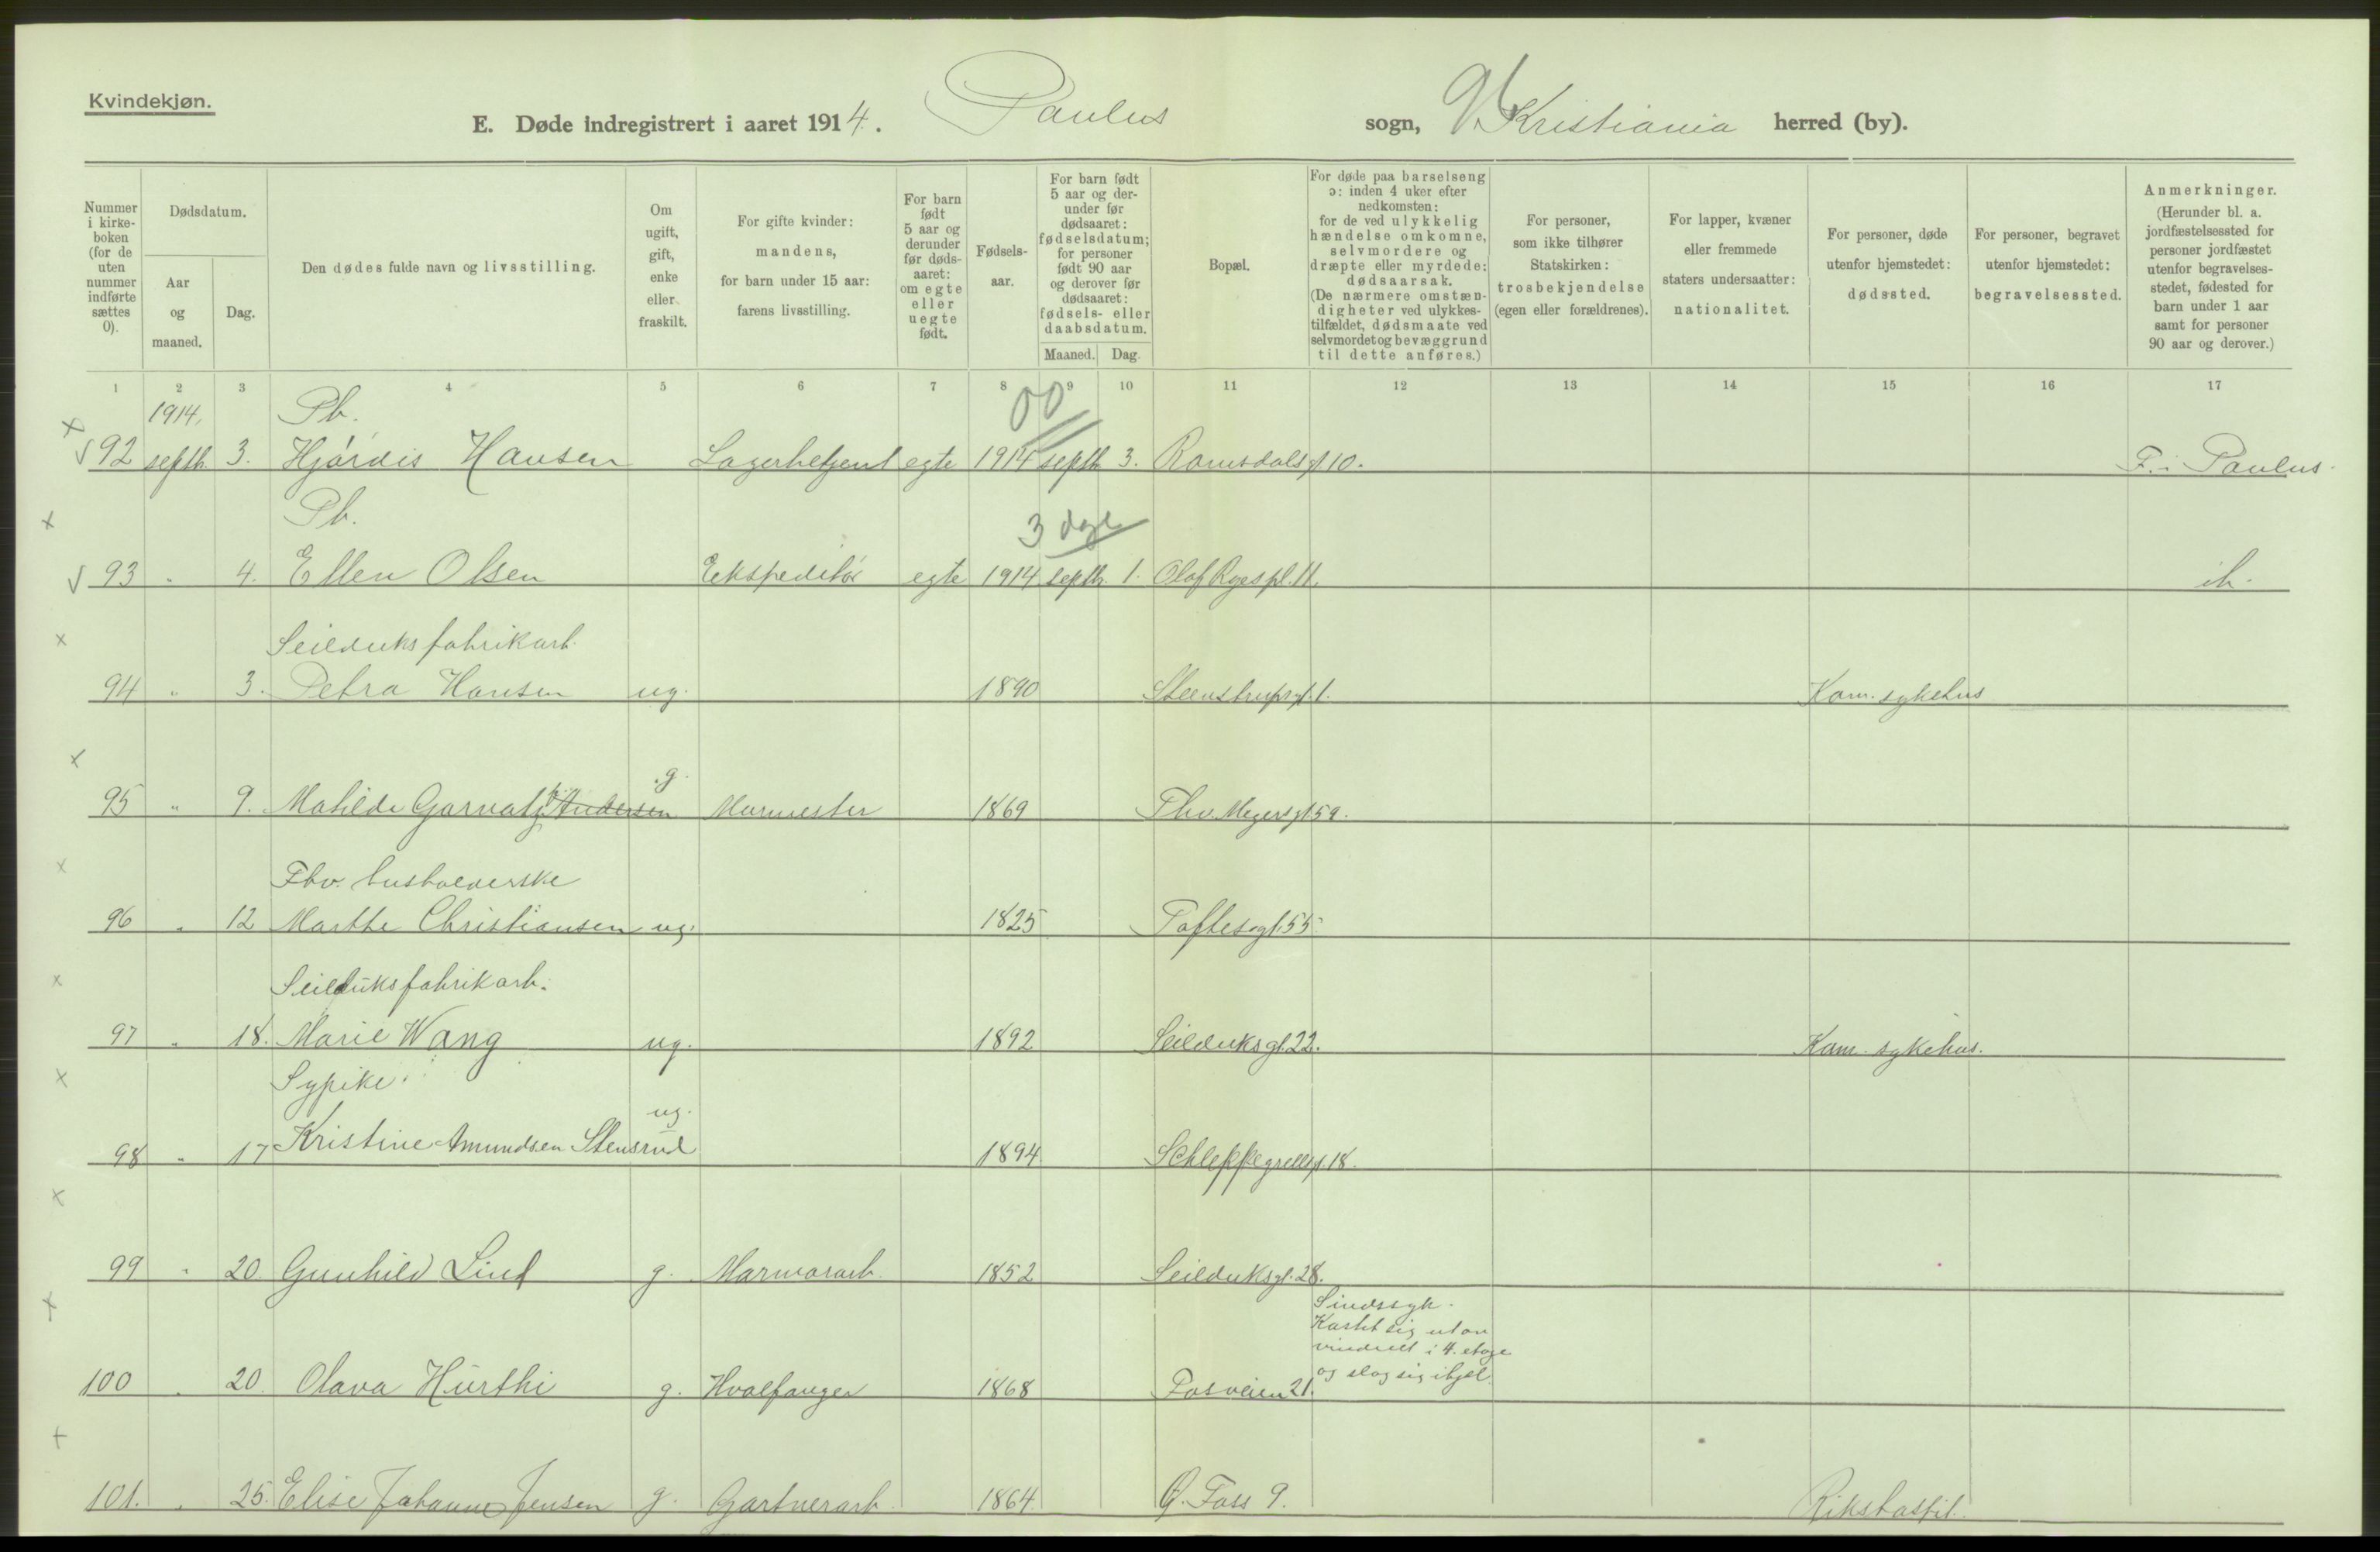 Kvindekjøn.
E. Døde indregistrert i aaret 1914. Paulus sogn, Kristiania herred (by).
Nummer i kirkeboken (for de uten nummer indførte sættes 0).
Dødsdatum.
Aar og maaned.
Dag.
Den dødes fulde navn og livsstilling.
Om ugift, gift, enke eller fraskilt.
For gifte kvinder: mandens, for barn under 15 aar: farens livsstilling.
For barn født 5 aar og derunder før dødsaaret: om egte eller uegte født.
Fødselsaar.
For barn født 5 aar og derunder før dødsaaret: fødselsdatum; for personer født 90 aar og derover før dødsaaret: fødsels- eller daabsdatum.
Maaned. Dag.
Bopæl.
For døde paa barselseng ɔ: inden 4 uker efter nedkomsten: for de ved ulykkelig hændelse omkomne, selvmordere og dræpte eller myrdede: dødsaarsak. (De nærmere omstændigheter ved ulykkestilfældet, dødsmaate ved selvmordet og bevæggrund til dette anføres.)
For personer, som ikke tilhører Statskirken: trosbekjendelse (egen eller forældrenes).
For lapper, kvæner eller fremmede staters undersaatter: nationalitet.
For personer, døde utenfor hjemstedet: dødssted.
For personer, begravet utenfor hjemstedet: begravelsessted.
Anmerkninger. (Herunder bl. a. jordfæstelsessted for personer jordfæstet utenfor begravelsesstedet, fødested for barn under 1 aar samt for personer 90 aar og derover.)
1 2 3 4 5 6 7 8 9 10 11 12 13 14 15 16 17
1914. Pb. 00
92 septb. 3. Hjørdis Hansen Lagerbetjent egte 1914 septb. 3. Romsdalsgt 10. F. i Paulus.
Pb. 3 dage
93 " 4. Ellen Olsen Ekspeditør egte 1914 septb. 1. Olaf Ryespl. 11. ib.
Seilduksfabrikarb.
94 " 3. Petra Hansen ug. 1890 Steenstrupsgt. 1. Kom. sykehus
95 " 9. Matilde Garvatz Andersen g. Murmester 1869 Thv. Meyersgt 59.
Fhv. husholderske
96 " 12 Marthe Christiansen ug. 1825 Toftesgt. 55.
Seilduksfabrikarb.
97 " 18. Marie Wang ug. 1892 Seilduksgt. 22. Kom. sykehus.
Sypike.
98 " 17 Kristine Amundsen Stensrud ug. 1894 Schleppegrellsgt. 18.
99 " 20. Gunhild Lind g. Marmorarb. 1852 Seilduksgt. 28.
Sindssyk.
Kastet sig ut av
vinduet i 4. etage
og slog sig ihjel.
100 " 20. Olava Hurthi g. Hvalfanger 1868 Fosveien 21.
101. " 25. Elise Johanne Jensen g. Gartnerarb. 1864 Ø. Foss 9. Rikshospit.